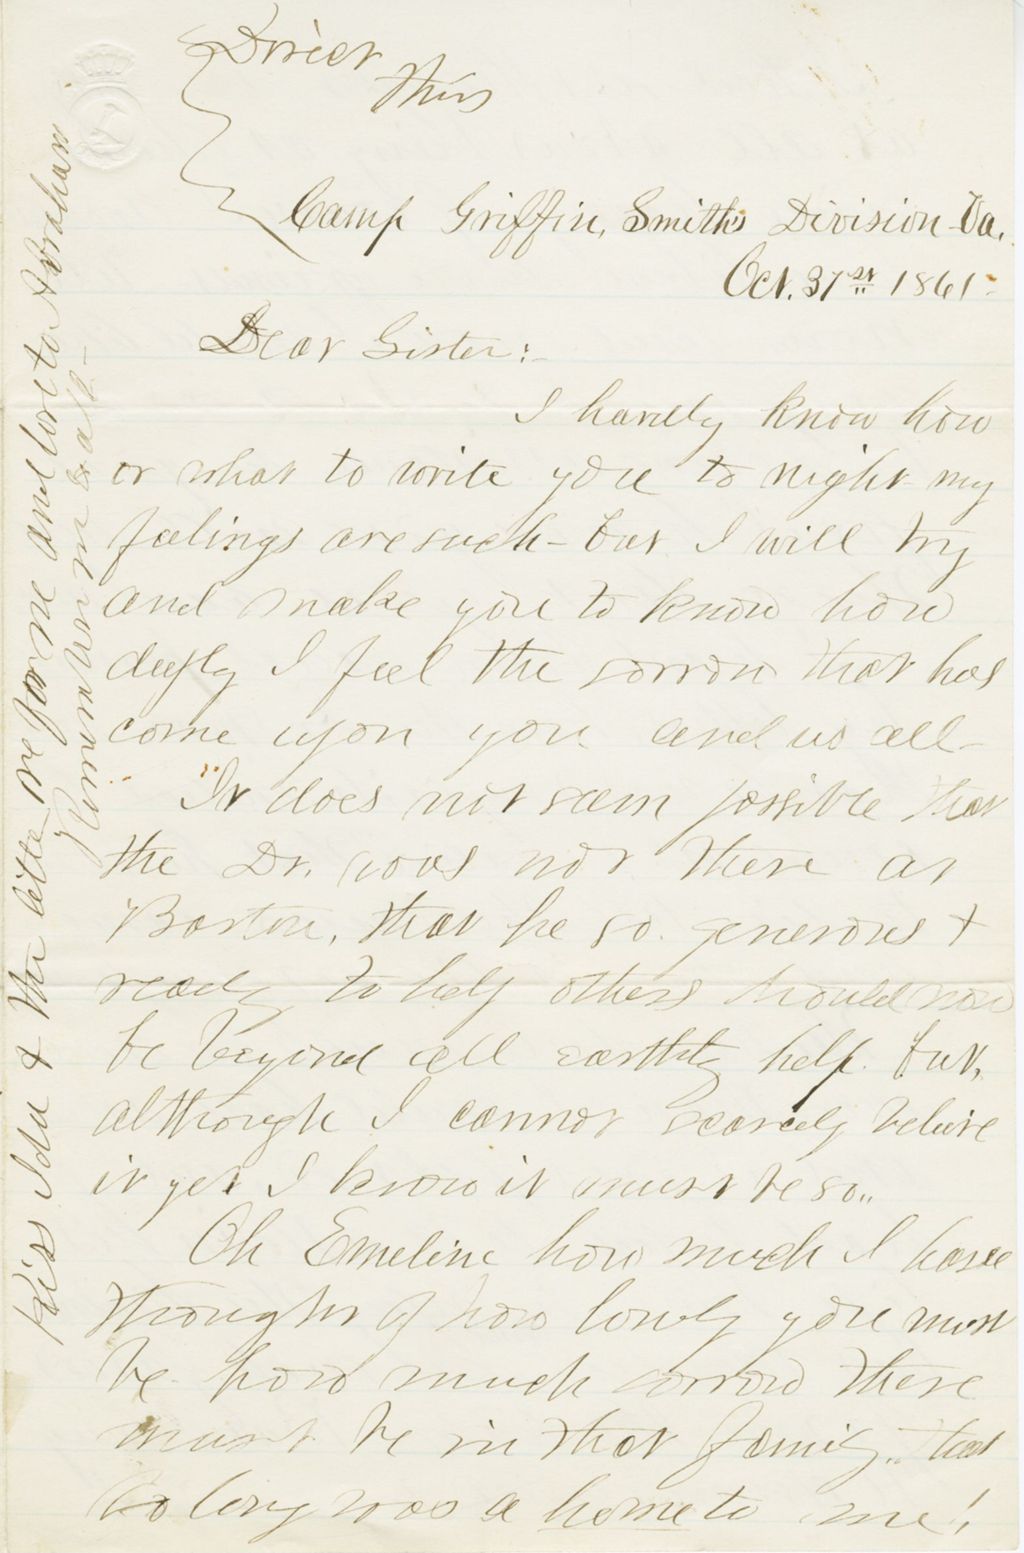 Direct
this
Camp Griffin, Smiths Division Va.
Oct. 31st 1861-
Dear Sister:-
I hardly know how
or what to write you to night my
feelings are such - but I will try
and make you to know how
deeply I feel the sorrow that has
come upon you and us all-
It does not seem possible that
the Dr. was not there at
Barton, that he so generous +
ready to help others should now
be beyond all earthly help. but,
although I cannot scarcely believe
it yet I know it must be so..
Oh Emeline how much I have
thought of how lonely you must
be how much sorrow there
must be in that family.. that
so long was a home to me!
Kiss Ida & the little one for me and love to Abraham
Remember me to all-